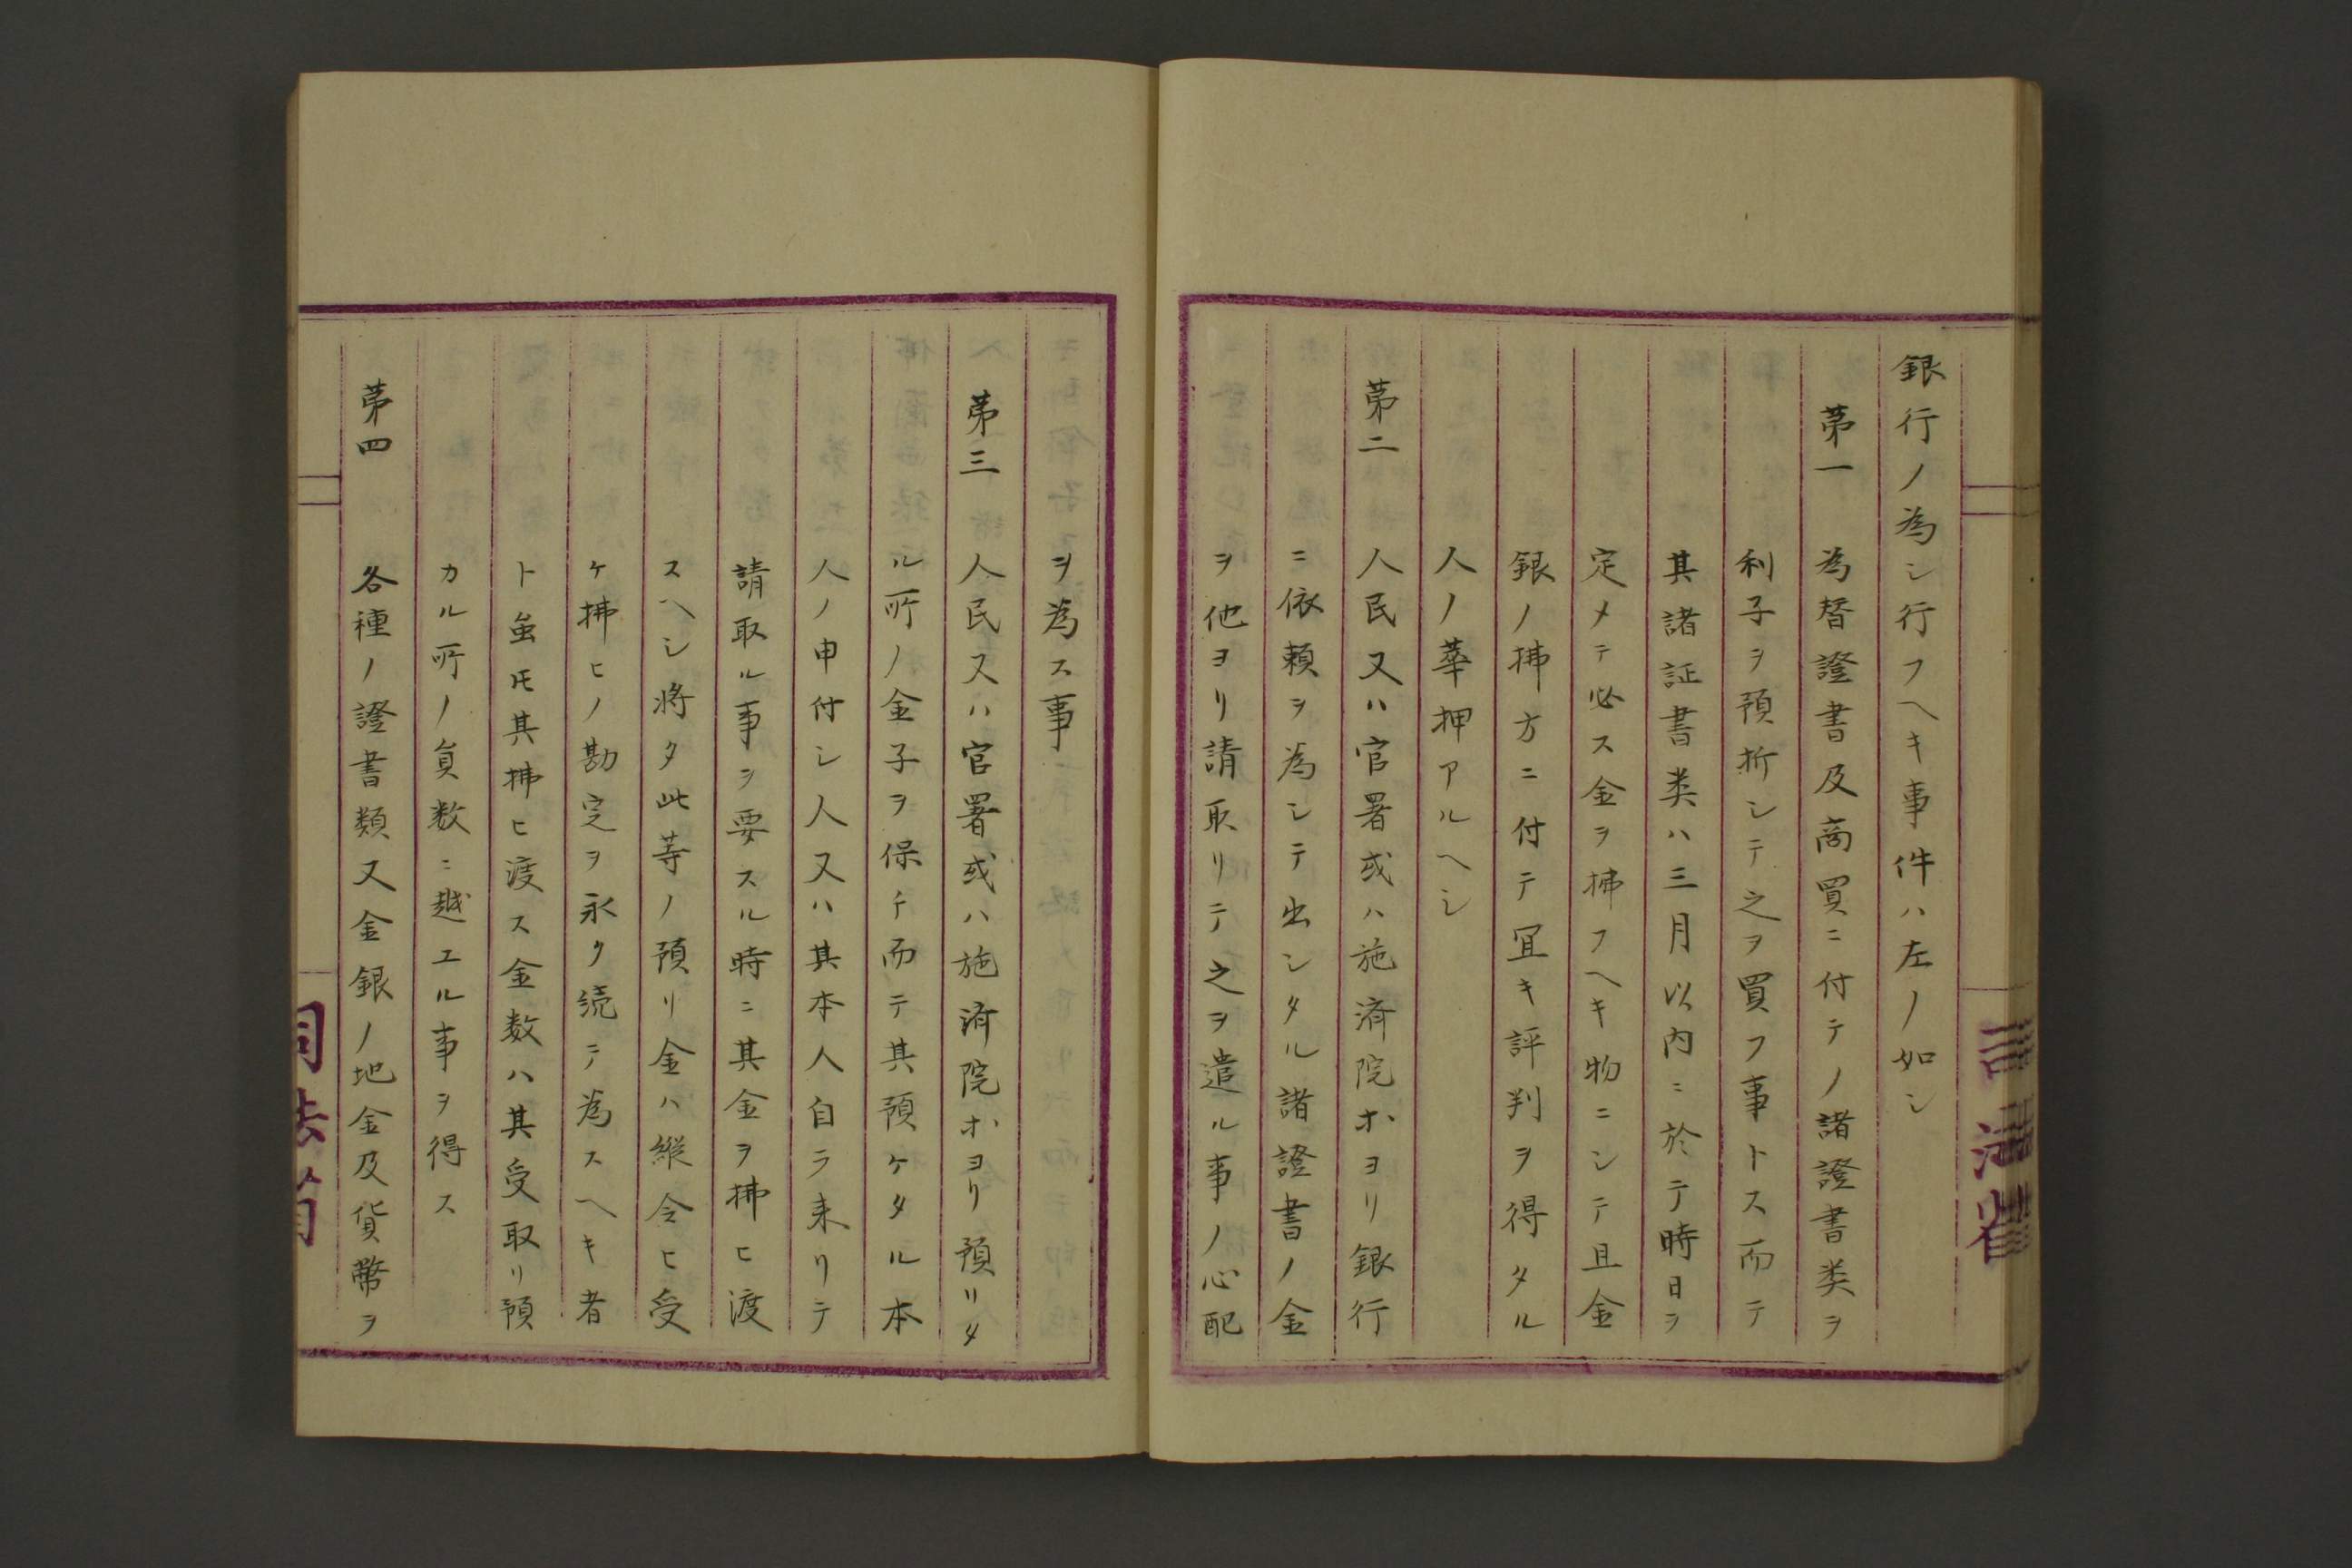 銀行ノ為シ行フヘキ事件ハ左ノ如シ
第一 為替證書及商買ニ付テノ諸證書类ヲ
利子ヲ預折シテ之ヲ買フ事トス而テ
其諸証書类ハ三月以内ニ於テ時日ヲ
定メテ必ス金ヲ拂フヘキ物ニシテ且金
銀ノ拂方ニ付テ冝キ評判ヲ得タル
人ノ華押アルヘシ
第二 人民又ハ官署或ハ施済院ホヨリ銀行
ニ依頼ヲ為シテ出シタル諸證書ノ金
ヲ他ヨリ請取リテ之ヲ遣ル事ノ心配
ヲ為ス事
第三 人民又ハ官署或ハ施済院ホヨリ預リタ
ル所ノ金子ヲ保チ而テ其預ケタル本
人ノ申付シ人又ハ其本人自ラ来リテ
請取ル事ヲ要スル時ニ其金ヲ拂ヒ渡
スヘシ将タ此等ノ預リ金ハ縦令ヒ受
ケ拂ヒノ勘定ヲ永ク続テ為スヘキ者
ト虽𪜈其拂ヒ渡ス金数ハ其受取リ預
カル所ノ負数ニ越エル事ヲ得ス
第四 各種ノ證書類又金銀ノ地金及貨幣ヲ
司法省